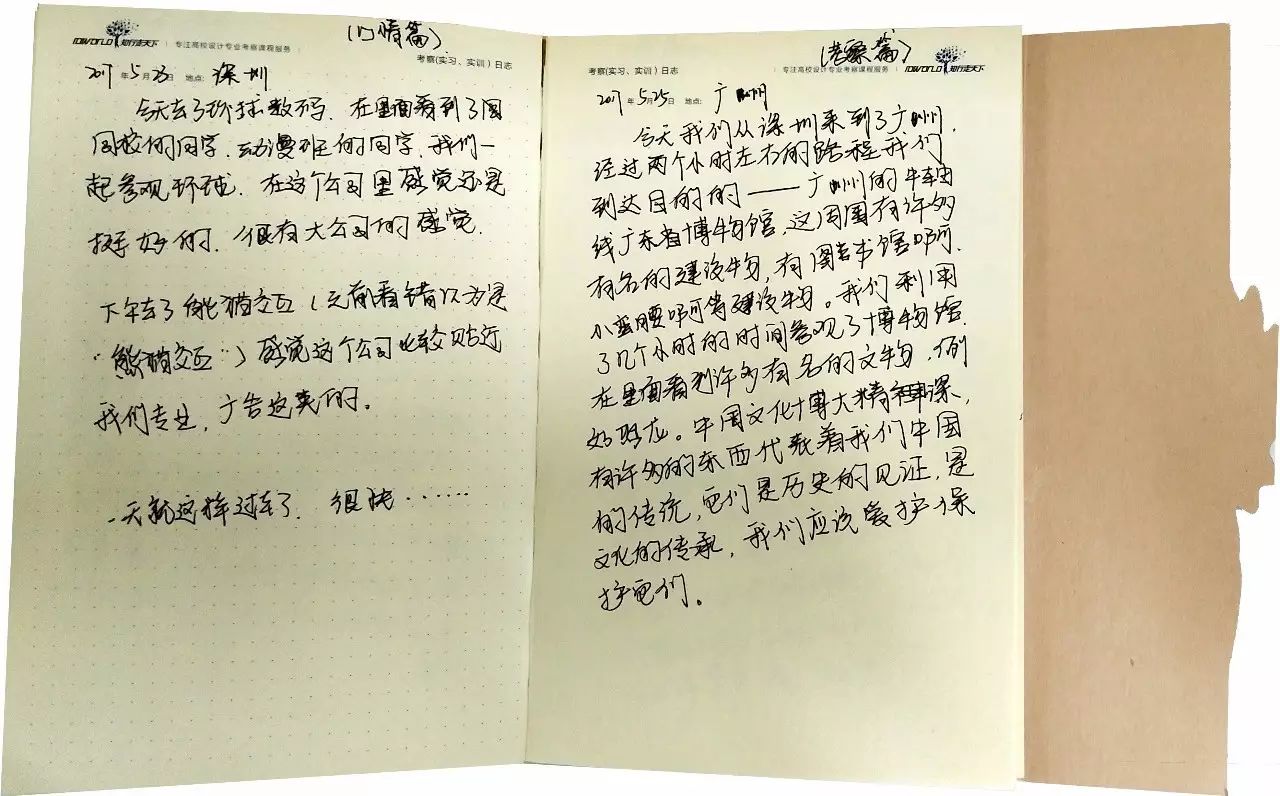 (心情篇)
IDWORLD 知行天下 | 专注高校设计专业考察课程服务 |
考察(实习、实训)日志
2017年5月23日 地点: 深圳
今天去了环球数码,在里面看到了同
同校的同学,动漫班的同学,我们一
起参观环球,在这个公司里感觉还是
挺好的,很有大公司的感觉.
下午去了熊猫交互(之前看错以为是
"熊猫交互")感觉这个公司比较贴近
我们专业,广告这类的。
一天就这样过去了,很快……
(考察篇)
考察(实习、实训)日志
| 专注高校设计专业考察课程服务 | IDWORLD 知行天下
2017年5月25日 地点: 广州
今天我们从深圳来到了广州,
经过两个小时左右的路程我们
到达目的的——广州的中轴
线广东省博物馆,这周围有许多
有名的建设物,有图书馆啊,
小蛮腰啊等建设物。我们利用
了几个小时的时间参观了博物馆
在里面看到许多有名的文物,例
如恐龙。中国文化博大精深,
有许多的东西代表着我们中国
的传统,它们是历史的见证,是
文化的传承,我们应该爱护保
护它们。